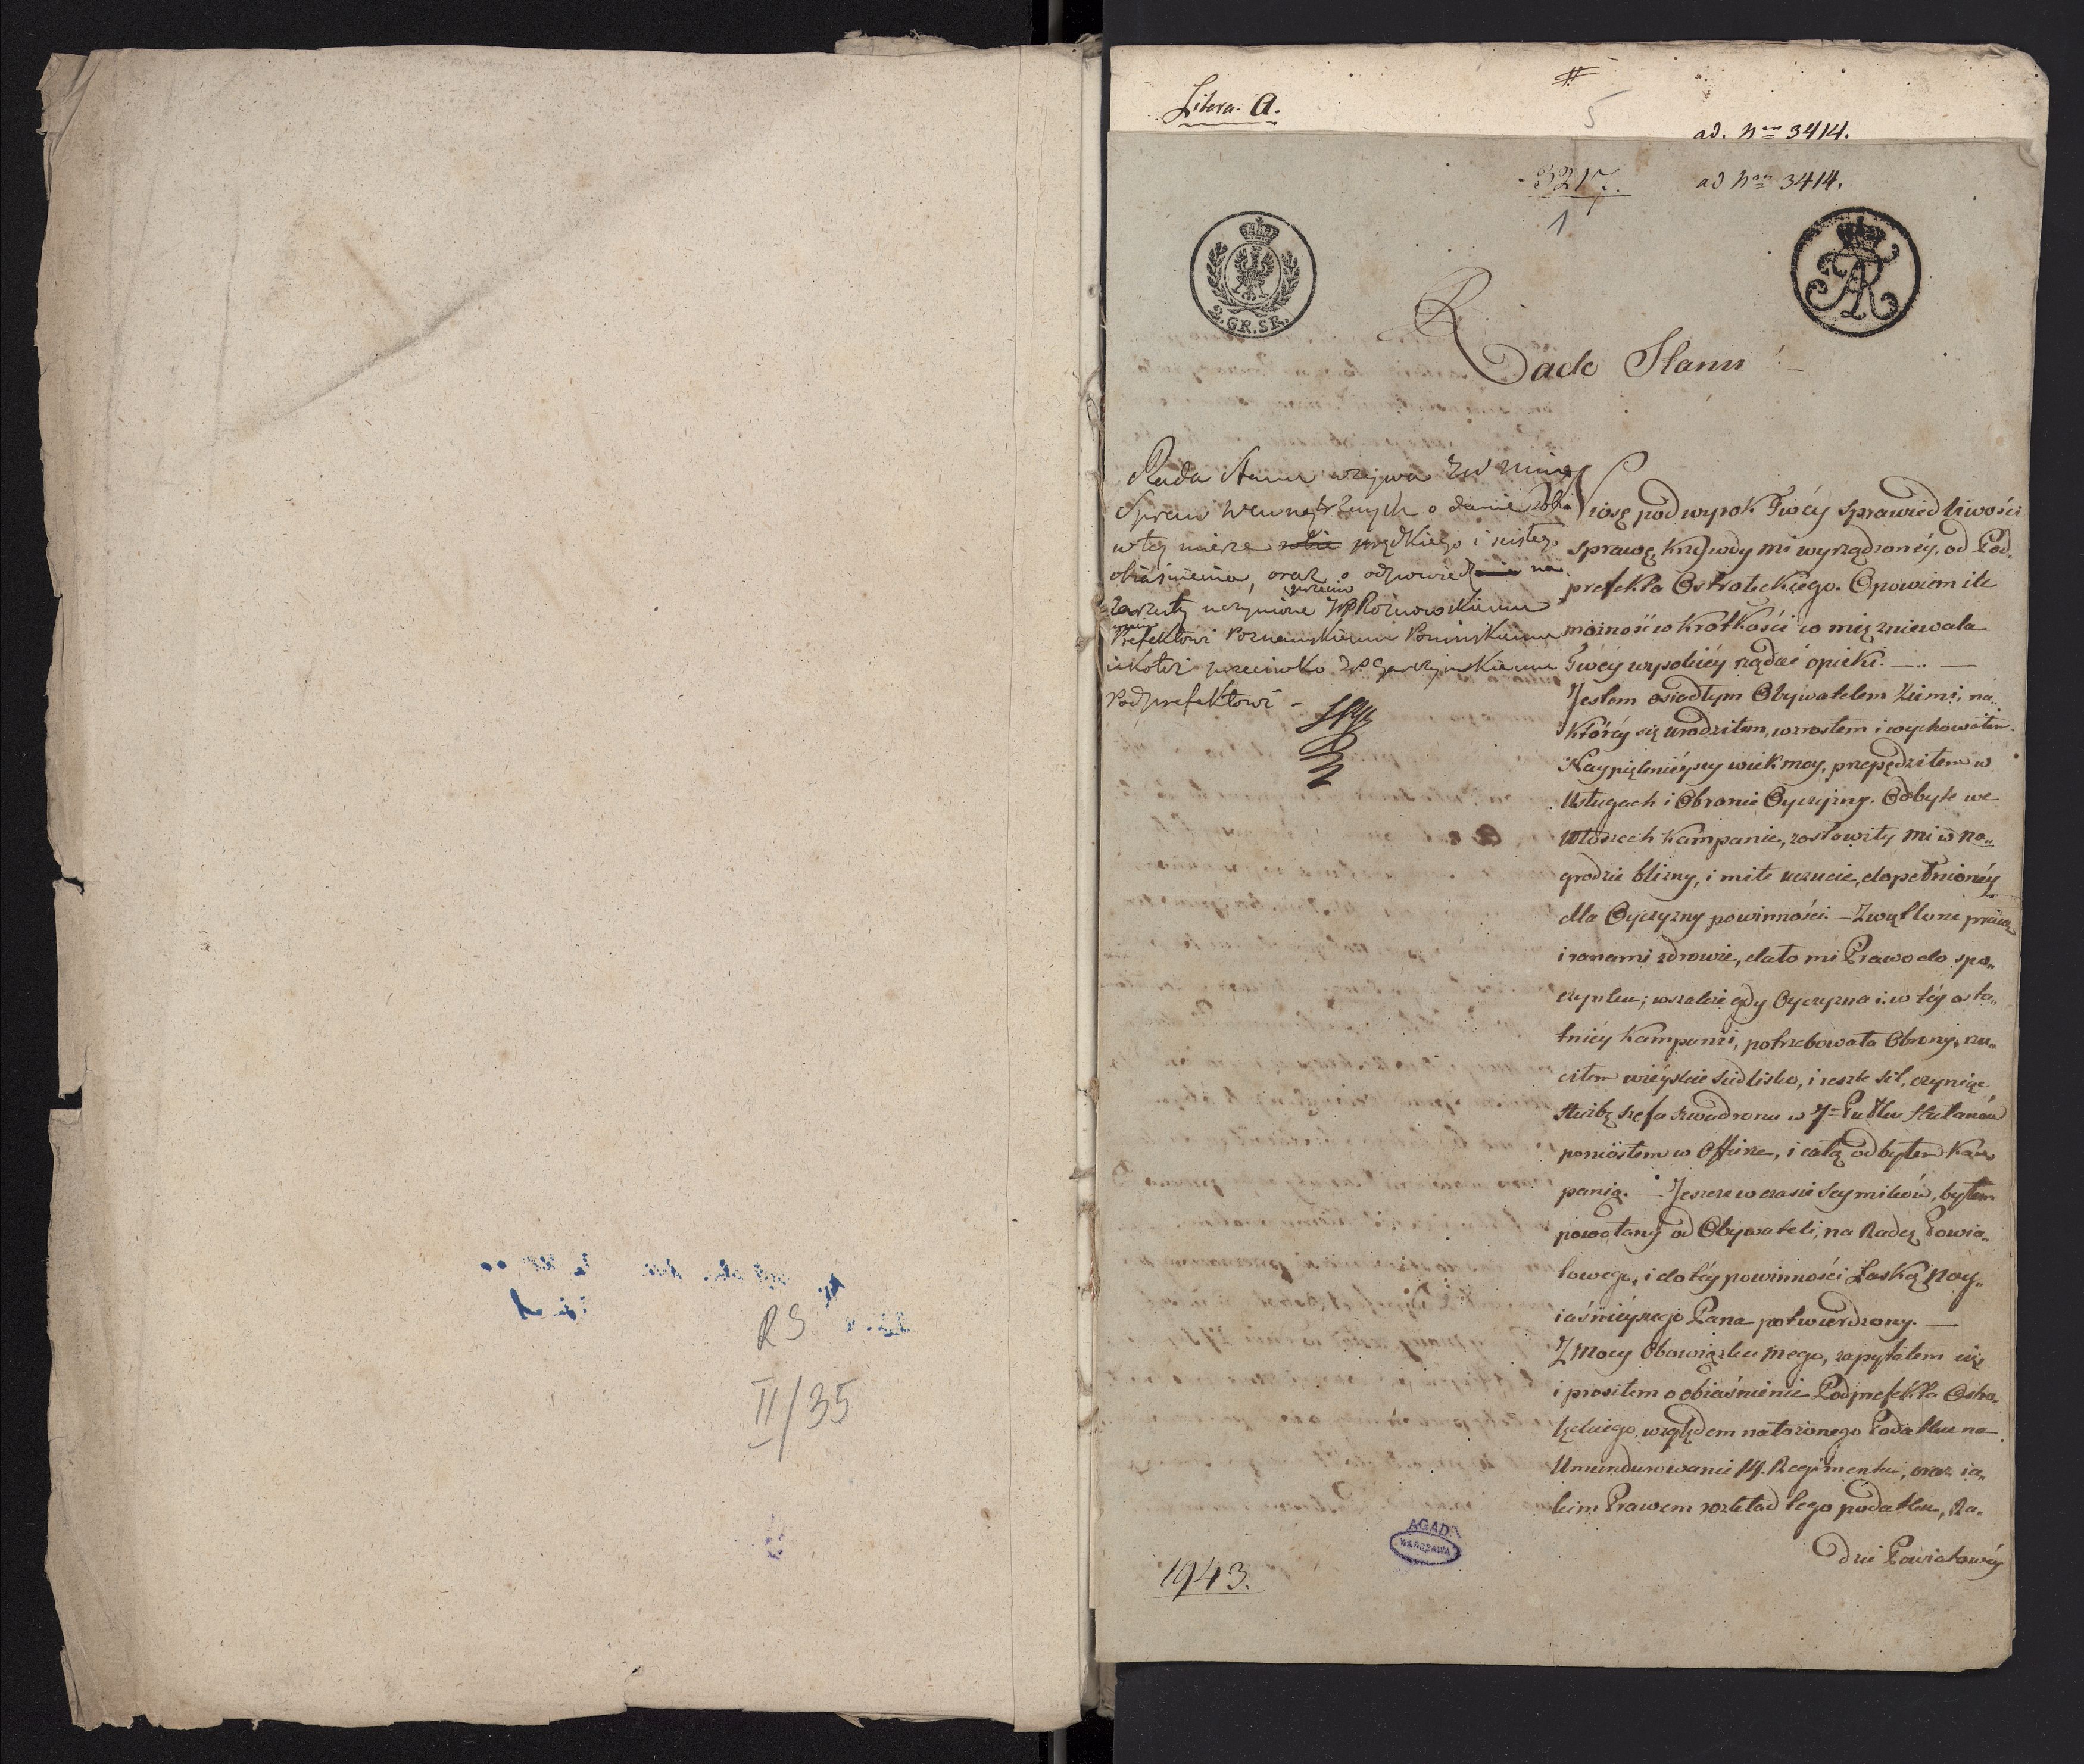 RS
II/35
Litera. A.
#
5
ad. Nrm 3414.
3217.
ad Nrm 3414.
1
2.GR.SR.
FAR
Rado Stanu!
Rada Stanu wzywa JW Minis
Spraw Wewnętrznych o danie sobie
w tej mierze sobie prędkiego i ścisłego
obiaśnienia, oraz o odpowiedź na
zarzuty uczynione przeciw JW Roznowskiemu
Prefektowi Poznańskiemu Ponińskiemu
iakoteż przeciwko W. Garczyńskiemu
Podprefektowi -
Niosę pod wyrok Twóéy Sprawiedliwości
sprawę krzywdy mi wyrządzonéy, od Pod„
prefekta Ostrołęckiego. Opowiem ile
możność w krótkości co mię zniewala
Twéy wysokiéy żądać opieki. —
Jestem osiadłym Obywatelem Ziemi, na„
któréy się urodziłem, wzrostem i wychowałem.
Naypięknieyszy wiek moy, przepędziłem w
Usługach i Obronie Oyczyzny. Odbyte we
Włoszech Kampanie, zostawiły mi w na„
grodzie blizny, i miłe uczucie, dopełnionéy
dla Oyczyzny powinności. — Zwątlone pracą
i ranami zdrowie, dało mi Prawo do spo„
czynku; wszakże gdy Oyczyzna i w téy osta„
tniéy Kampanii, potrzebowała Obrony, rzu„
ciłem wieyskie siedlisko, i resztę sił, czyniąc
służbę szefa szwadronu w 7m Pułku Hułanów
poniosłem w Offierze, i całą odbyłem Kam„
panią. — Jeszcze w czasie Seymików, byłem
powołany od Obywateli, na Radcę Powia„
towego, i do téy powinności Łaską Nay„
iaśnieyszego Pana potwierdzony. —
Z Mocy Obowiązku mego, zapytałem się
i prosiłem o obiaśnienie Podprefekta Ostro„
łęckiego, względem nałożonego Podatku na
Umundurowanie 14. Regimentu, oraz ia„
kim Prawem rozkład tego podatku, Ra„
dzie Powiatowéy
AGAD
WARSZAWA
1943.